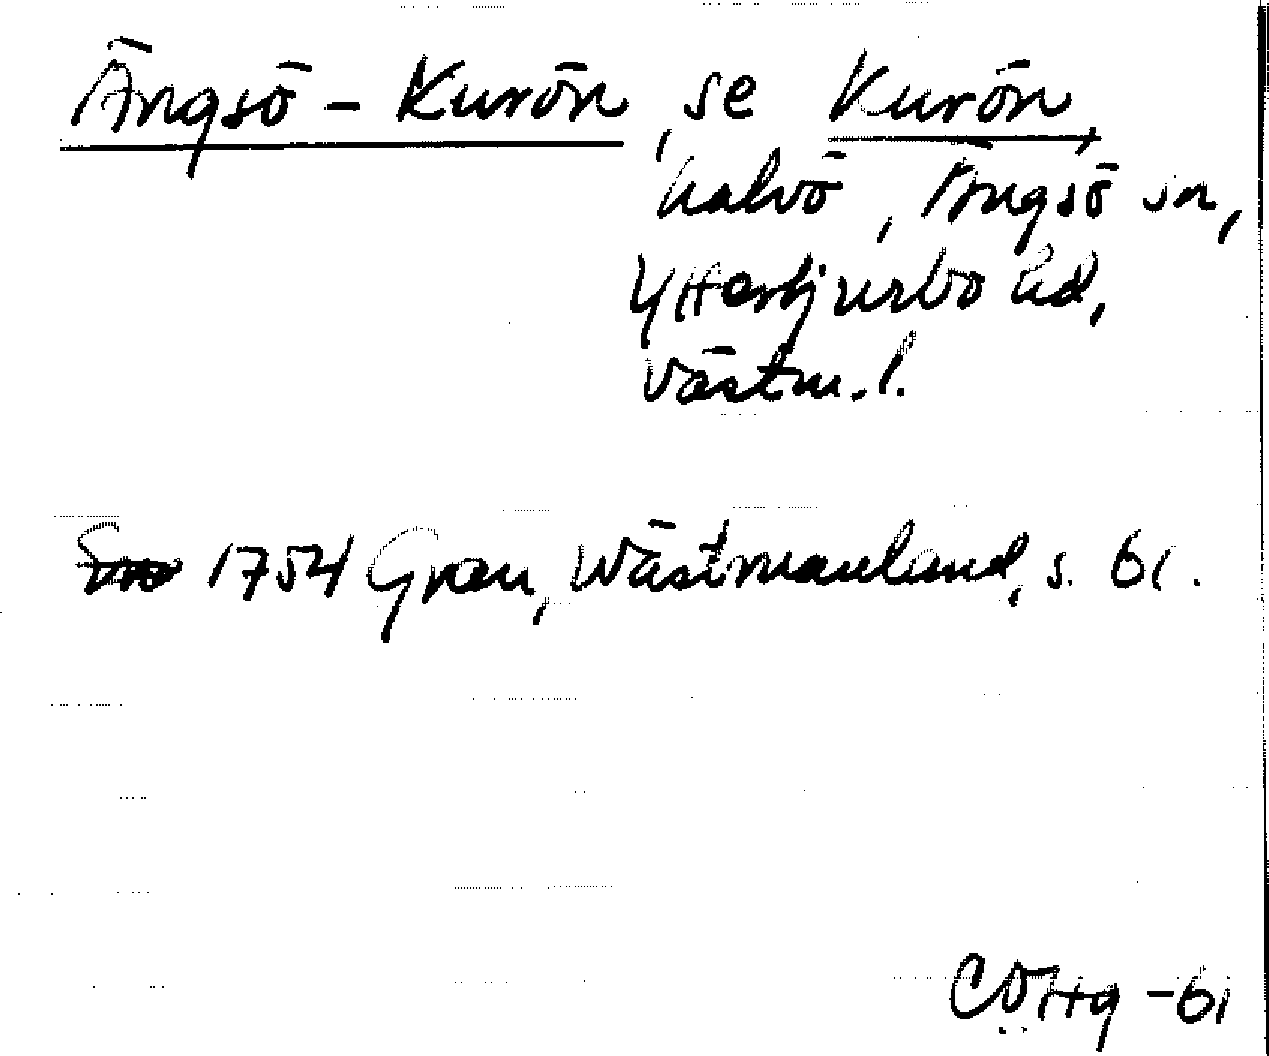 Ängsö - Kurön, se Kurön,
halvö, Ängsö sn,
Yttertjurbo hd,
Västm. l.
1754 Grau, Wästmanland, s. 61.
-61